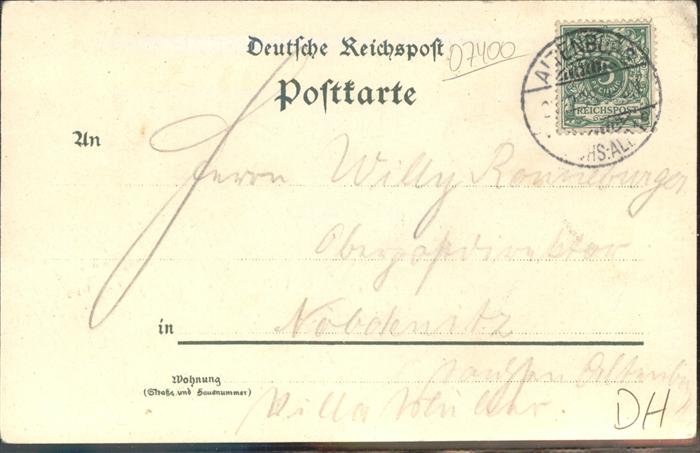 Deutsche Reichspost
07400
Postkarte
ALTENBURG
5
REICHSPOST
An
Herrn Willy Ronneburger
Oberpostdirektor
in Nöbdenitz
Sachsen Altenburg
Wohnung
(Straße und Hausnummer)
Villa
DH